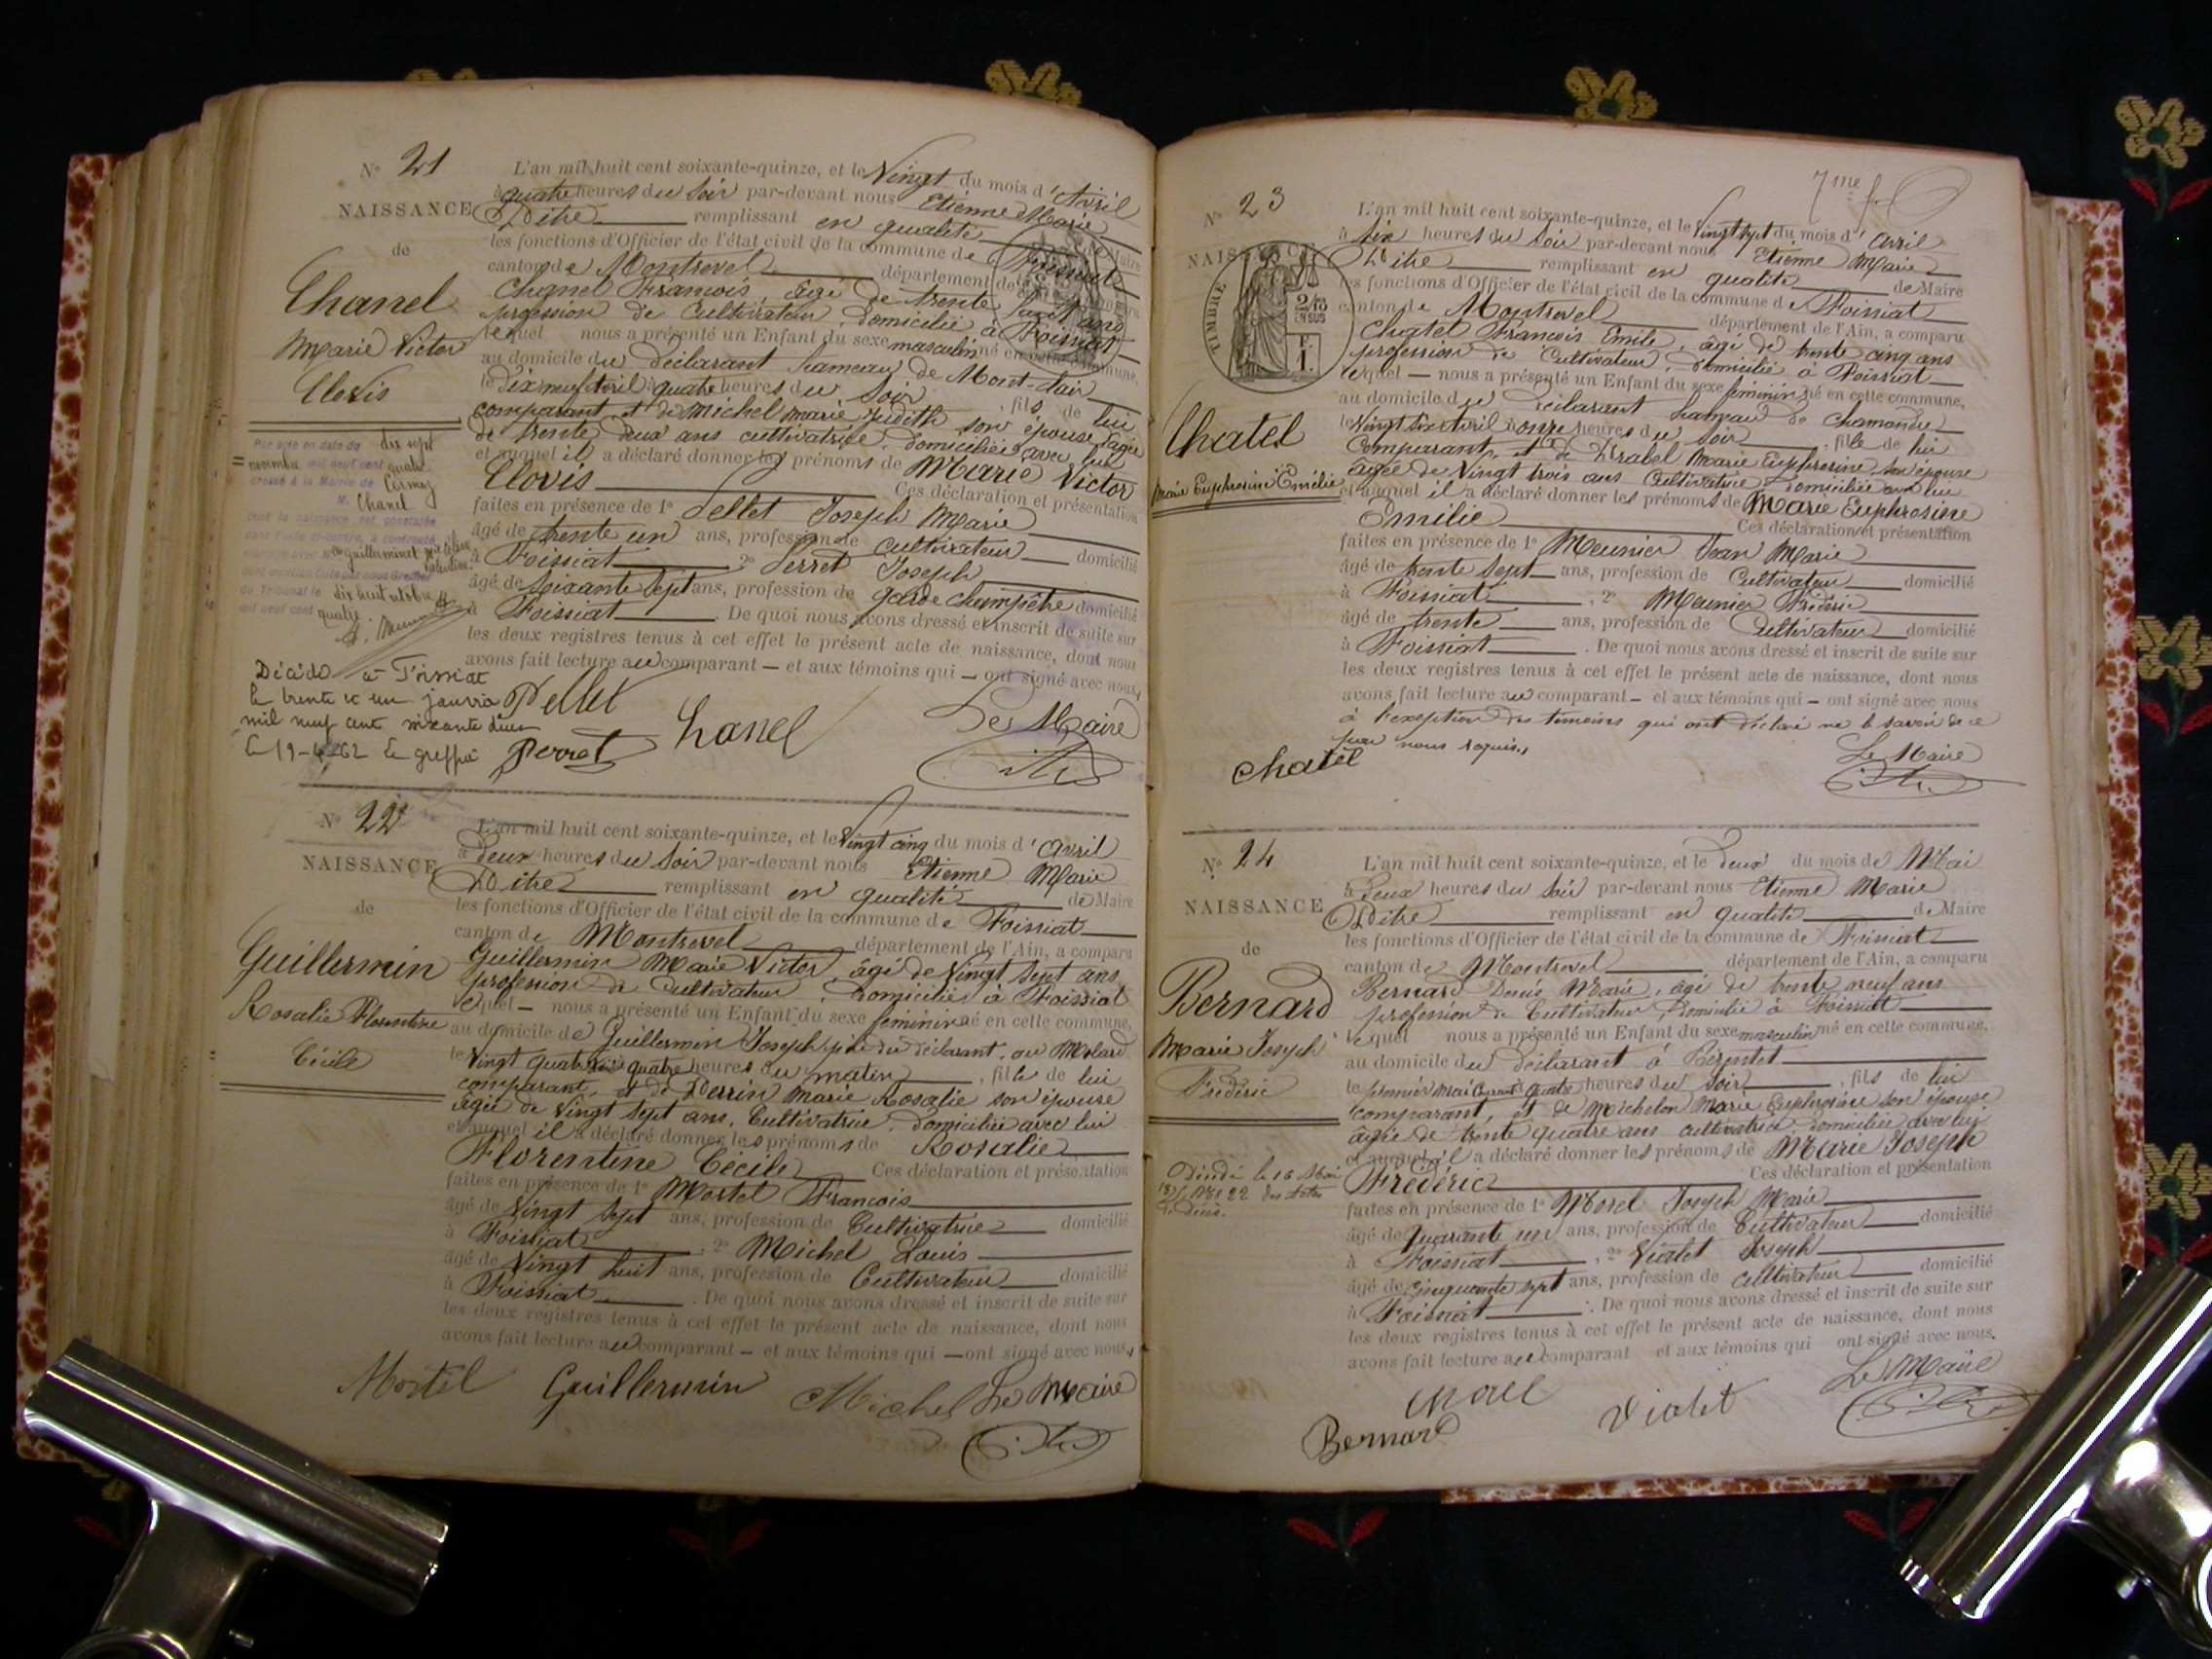 N° 21
NAISSANCE
de
Chanel
Marie Victor
Clovis
Par acte en date du dix sept
novembre mil neuf cent quatre
dressé à la Mairie de Cormoz
M. Chanel
dont la naissance est constatée
dans l'acte ci-contre, a contracté
mariage avec Guillerminet
du Tribunal le dix huit
mil neuf cent quatre
Décédé à Foissiat
le trente et un janvier
mil neuf cent soixante deux
Le 19-4-62 Le greffier
L'an mil huit cent soixante-quinze, et le Vingt du mois d'Avril
à quatre heures du Soir par-devant nous Etienne Marie
Pitre remplissant en qualité de Maire
les fonctions d'Officier de l'état civil de la commune de Foissiat
canton de Montrevel département de
Chanel François, âgé de trente huit ans
profession de Cultivateur, domicilié à Foissiat
lequel nous a présenté un Enfant du sexe masculin né en cette commune,
au domicile du déclarant hameau de Mont-clair
le Dix neuf Avril à quatre heures du Soir, fils de lui
comparant, et de Michel Marie Judith son épouse âgée
de trente deux ans cultivatrice, domiciliée avec lui
et auquel il a déclaré donner les prénoms de Marie Victor
Clovis Ces déclaration et présentation
faites en présence de 1° Pellet Joseph Marie
âgé de trente un ans, profession de cultivateur domicilié
à Foissiat, 2° Perret Joseph
âgé de Soixante Sept ans, profession de garde champêtre domicilié
à Foissiat. De quoi nous avons dressé et inscrit de suite sur
les deux registres tenus à cet effet le présent acte de naissance, dont nous
avons fait lecture au comparant — et aux témoins qui — ont signé avec nous,
Pellet
Chanel
Le Maire
Perret
Pitre
N° 22
NAISSANCE
de
Guillermin
Rosalie Florentine
Cécile
L'an mil huit cent soixante-quinze, et le Vingt cinq du mois d'Avril
à deux heures du Soir par-devant nous Etienne Marie
Pitre remplissant en qualité de Maire
les fonctions d'Officier de l'état civil de la commune de Foissiat
canton de Montrevel département de l'Ain, a comparu
Guillermin Marie Victor, âgé de Vingt Sept ans
profession de Cultivateur, domicilié à Foissiat
lequel — nous a présenté un Enfant du sexe féminin né en cette commune,
au domicile de Guillermin Joseph père du déclarant, au Molard
le Vingt quatre à quatre heures du matin, fille de lui
comparant, et de Perrin Marie Rosalie son épouse
âgée de Vingt Sept ans, Cultivatrice, domiciliée avec lui
et auquel il a déclaré donner les prénoms de Rosalie
Florentine Cécile Ces déclaration et présentation
faites en présence de 1° Mortel François
âgé de Vingt Sept ans, profession de Cultivatrice domicilié
à Foissiat, 2° Michel Louis
âgé de Vingt huit ans, profession de Cultivateur domicilié
à Foissiat. De quoi nous avons dressé et inscrit de suite sur
les deux registres tenus à cet effet le présent acte de naissance, dont nous
avons fait lecture au comparant — et aux témoins qui — ont signé avec nous,
Mortel Guillermin Michel Le Maire
Pitre
7me f
N° 23
NAISSANCE
TIMBRE
2/10
EN SUS
F.
1.
Chatel
Marie Euphrosine Emélie
L'an mil huit cent soixante-quinze, et le Vingt sept du mois d'Avril
à Six heures du Soir par-devant nous Etienne Marie
Pitre remplissant en qualité de Maire
les fonctions d'Officier de l'état civil de la commune de Foissiat
canton de Montrevel département de l'Ain, a comparu
Chatel François Emile, âgé de trente cinq ans
profession de Cultivateur, domicilié à Foissiat
lequel — nous a présenté un Enfant du sexe féminin né en cette commune,
au domicile du déclarant hameau de Chamandre
le Vingt Six Avril à onze heures du Soir, fille de lui
comparant, et de Marie Euphrosine son épouse
âgée de Vingt trois ans Cultivatrice domiciliée avec lui
et auquel il a déclaré donner les prénoms de Marie Euphrosine
Emélie Ces déclaration et présentation
faites en présence de 1° Meunier Jean Marie
âgé de trente sept ans, profession de Cultivateur domicilié
à Foissiat, 2° Meunier Frédéric
âgé de trente ans, profession de Cultivateur domicilié
à Foissiat. De quoi nous avons dressé et inscrit de suite sur
les deux registres tenus à cet effet le présent acte de naissance, dont nous
avons fait lecture au comparant — et aux témoins qui — ont signé avec nous
à l'exception des témoins qui ont déclaré ne le savoir de ce
par nous requis.
Chatel
Le Maire
Pitre
N° 24
NAISSANCE
de
Bernard
Marie Joseph
Frédéric
Décédé le 16 Mai
N° 22 des Actes
L'an mil huit cent soixante-quinze, et le Deux du mois de Mai
à Deux heures du Soir par-devant nous Etienne Marie
Pitre remplissant en qualité de Maire
les fonctions d'Officier de l'état civil de la commune de Foissiat
canton de Montrevel département de l'Ain, a comparu
Bernard Denis Marie, âgé de trente neuf ans
profession de Cultivateur, domicilié à Foissiat
lequel nous a présenté un Enfant du sexe masculin né en cette commune,
au domicile du déclarant à
le premier Mai Courant à quatre heures du Soir, fils de lui
comparant, et de Michelon Marie Euphrosine son épouse
âgée de trente quatre ans cultivatrice domiciliée avec lui
et auquel il a déclaré donner les prénoms de Marie Joseph
Frédéric Ces déclaration et présentation
faites en présence de 1° Morel Joseph Marie
âgé de Quarante un ans, profession de Cultivateur domicilié
à Foissiat, 2° Violet Joseph
âgé de Cinquante sept ans, profession de cultivateur domicilié
à Foissiat. De quoi nous avons dressé et inscrit de suite sur
les deux registres tenus à cet effet le présent acte de naissance, dont nous
avons fait lecture au comparant et aux témoins qui ont signé avec nous.
Morel Violet Le Maire
Bernard Pitre